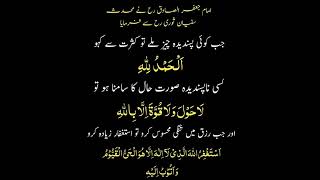 امام جعفر الصادق رح نے محدث
سفیان ثوری رح سے فرمایا
جب کوئی پسندیدہ چیز ملے تو کثرت سے کہو
اَلْحَمْدُ لِلّٰهِ
کسی ناپسندیدہ صورت حال کا سامنا ہو تو
لَا حَوْلَ وَلَا قُوَّةَ اِلَّا بِاللّٰهِ
اور جب رزق میں تنگی محسوس کرو تو استغفار زیادہ کرو
اَسْتَغْفِرُ اللّٰهَ الَّذِیْ لَآ اِلٰهَ اِلَّا هُوَ الْحَیُّ الْقَیُّوْمُ
وَ اَتُوْبُ اِلَیْهِ